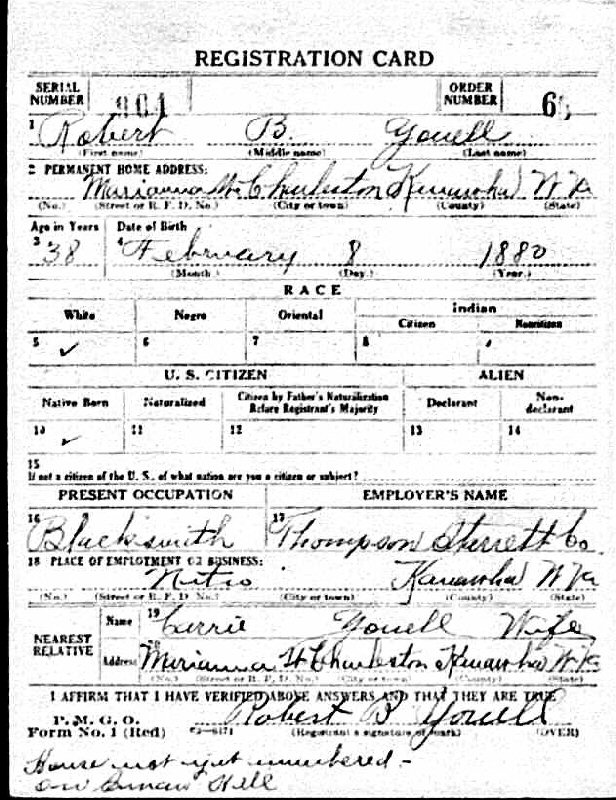 REGISTRATION CARD
SERIAL NUMBER 801 ORDER NUMBER 6
1 Robert B. Youell
(First name) (Middle name) (Last name)
2 PERMANENT HOME ADDRESS:
Marianna St Charleston Kanawha W Va
(No.) (Street or R. F. D. No.) (City or town) (County) (State)
Age in Years Date of Birth
3 38 4 February 8 1880
(Month.) (Day.) (Year.)
RACE
White Negro Oriental Indian
Citizen Noncitizen
5 ✓ 6 7 8
U. S. CITIZEN ALIEN
Native Born Naturalized Citizen by Father's Naturalization Before Registrant's Majority Declarant Non-declarant
10 ✓ 11 12 13 14
15
If not a citizen of the U. S., of what nation are you a citizen or subject?
PRESENT OCCUPATION EMPLOYER'S NAME
16 Blacksmith 17 Thompson Sterrett Co
18 PLACE OF EMPLOYMENT OR BUSINESS:
Nitro Kanawha W Va
(No.) (Street or R. F. D. No.) (City or town) (County) (State)
NEAREST RELATIVE Name 19 Carrie Youell Wife
Address 20 Marianna St Charleston Kanawha W Va
(No.) (Street or R. F. D. No.) (City or town) (County) (State)
I AFFIRM THAT I HAVE VERIFIED ABOVE ANSWERS AND THAT THEY ARE TRUE
P. M. G. O.
Form No. 1 (Red) Robert B Youell
(Registrant's signature or mark) (OVER)
House not yet numbered -
on Hill